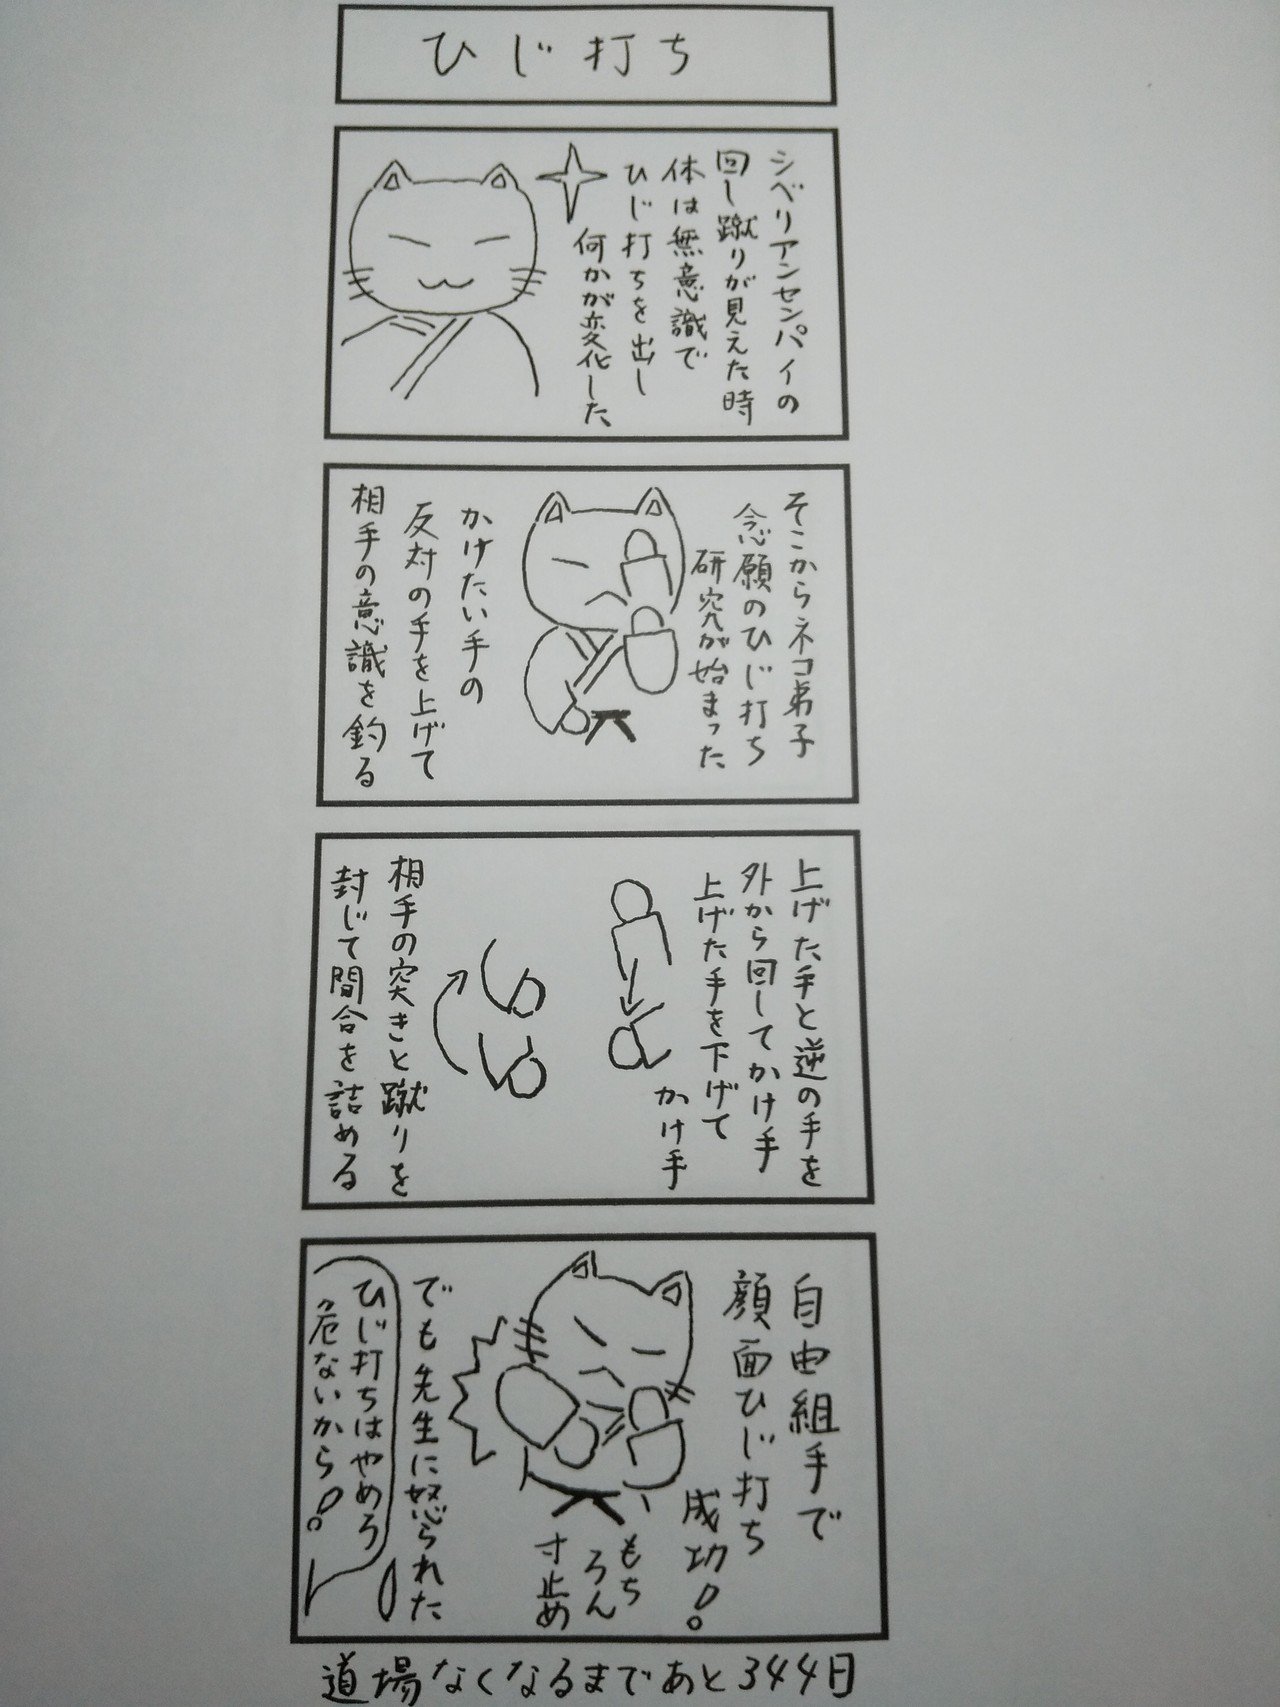 ひじ打ち
シベリアンセンパイの
回し蹴りが見えた時
体は無意識で
ひじ打ちを出し
何かが変化した
そこからネコ弟子
念願のひじ打ち
研究が始まった
かけたい手の
反対の手を上げて
相手の意識を釣る
上げた手と逆の手を
外から回してかけ手
上げた手を下げて
かけ手
相手の突きと蹴りを
封じて間合を詰める
自由組手で
顔面ひじ打ち
成功!。
もち
ろん
寸止め
でも先生に怒られた
ひじ打ちはやめろ
危ないから!。
道場なくなるまであと344日